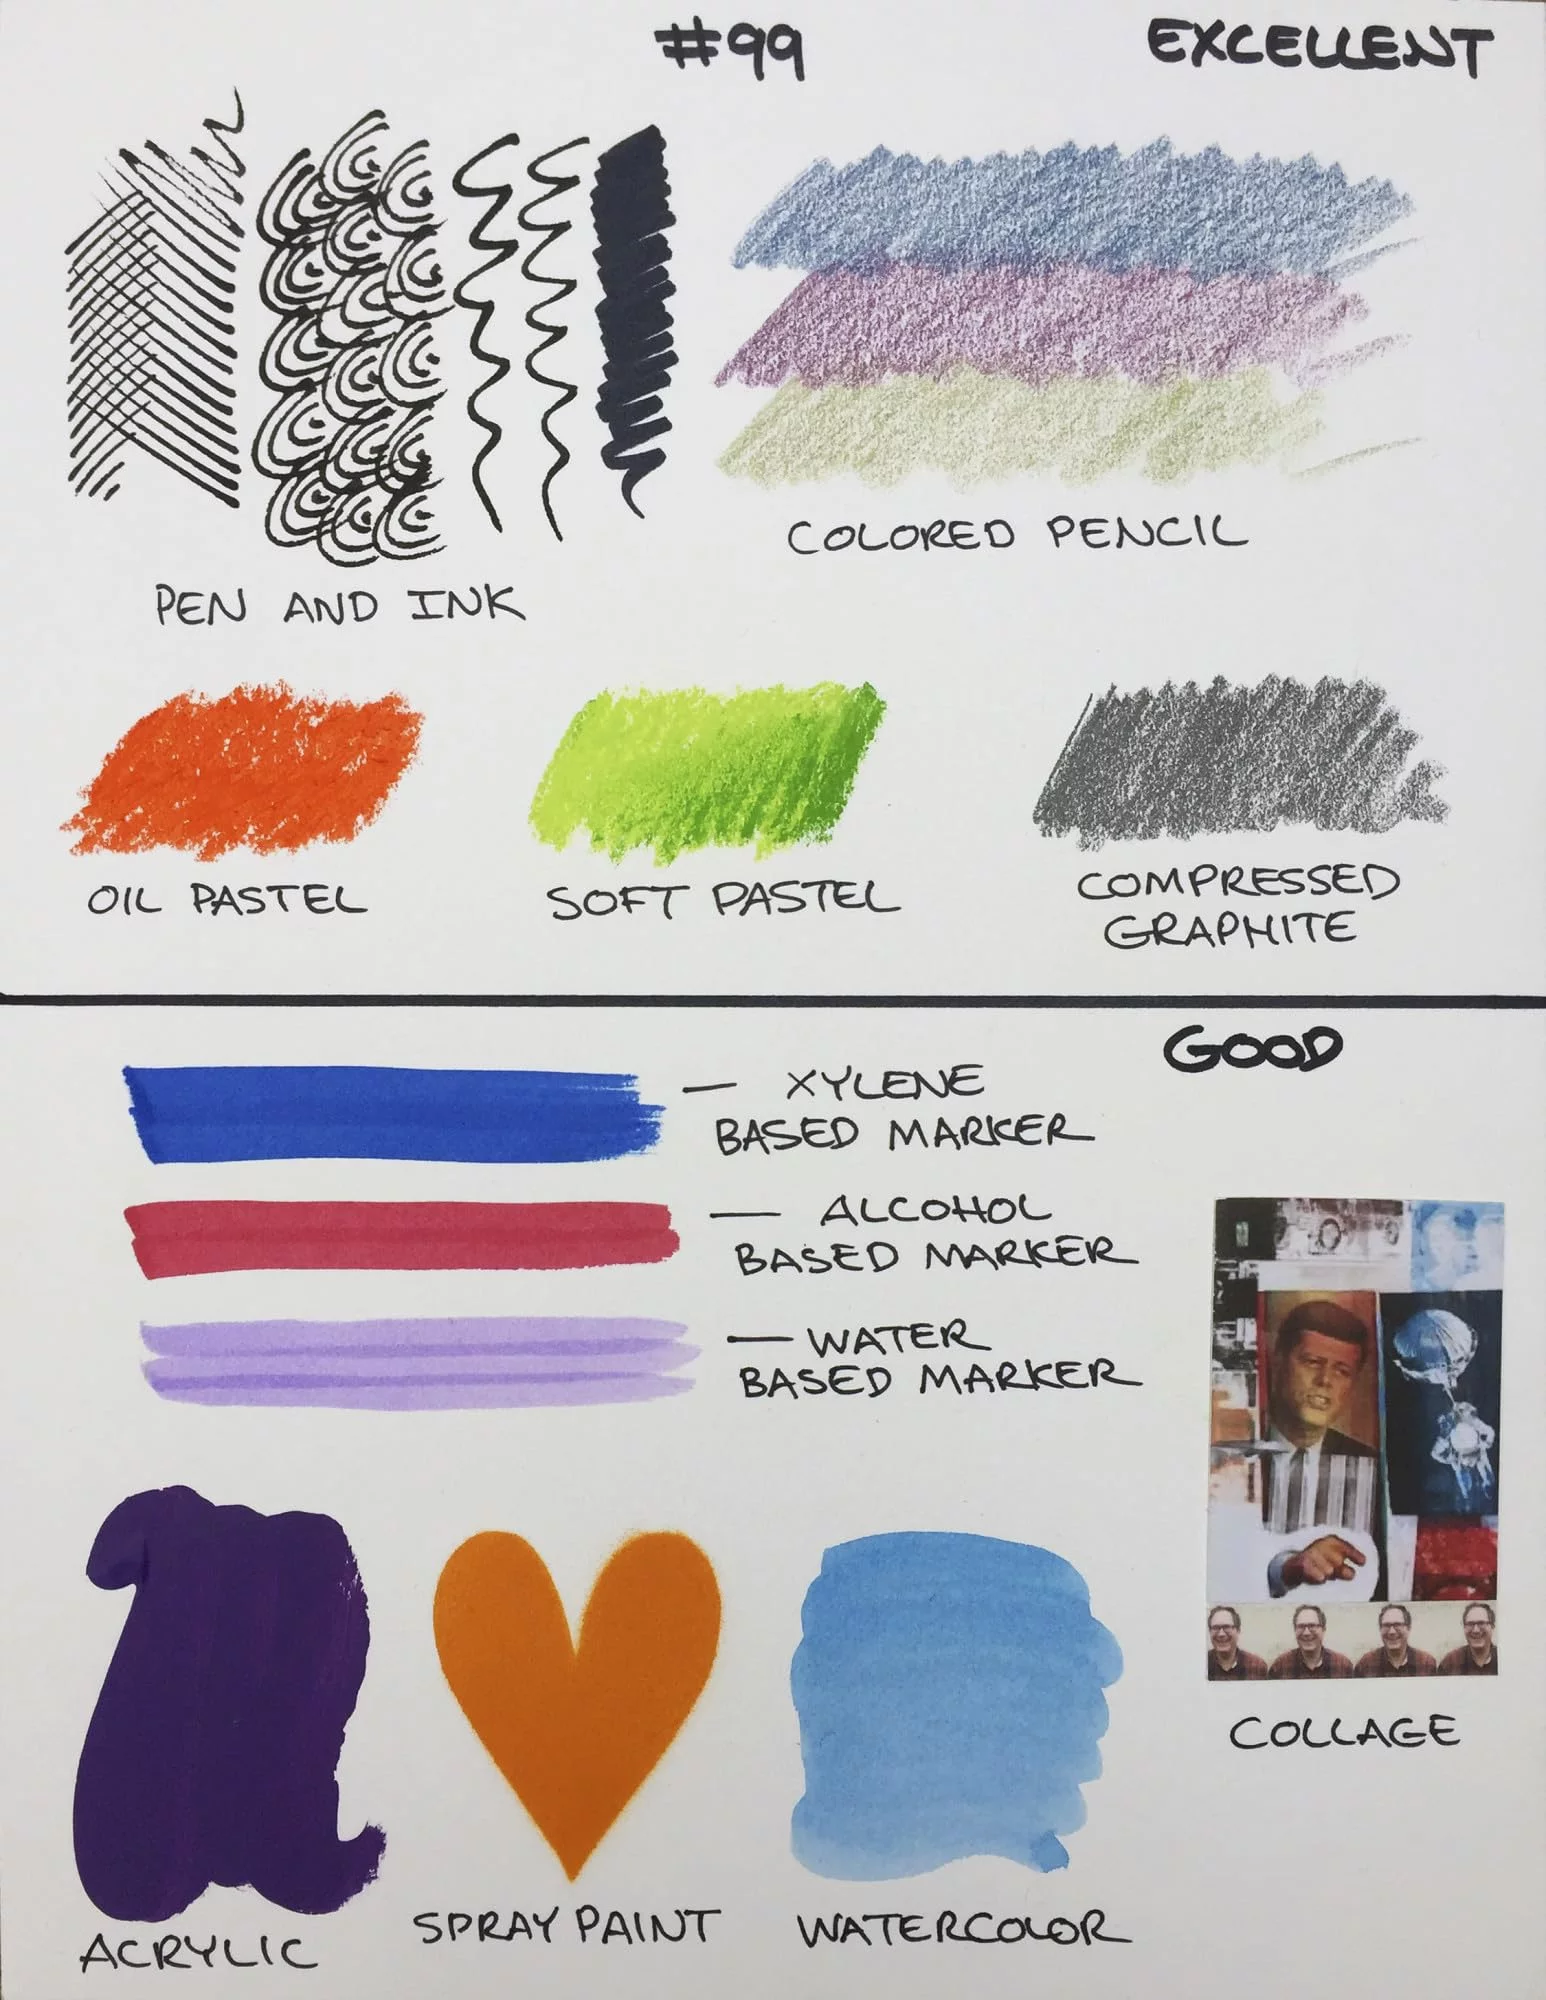 #99
EXCELLENT
PEN AND INK
COLORED PENCIL
OIL PASTEL
SOFT PASTEL
COMPRESSED
GRAPHITE
GOOD
XYLENE
BASED MARKER
ALCOHOL
BASED MARKER
WATER
BASED MARKER
COLLAGE
ACRYLIC
SPRAY PAINT
WATERCOLOR